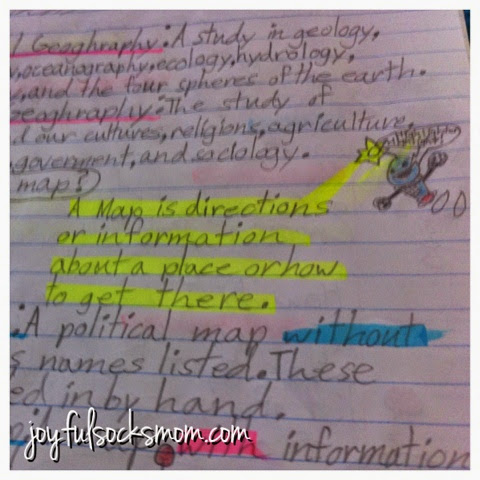 l Geoghraphy: A study in geology,
y, oceanagraphy, ecology, hydrology,
e, and the four spheres of the earth.
Geoghraphy: The study of
d our cultures, religions, agriculture,
, goverment, and sociology.
map:)
A Map is directions
or information
about a place or how
to get there.
: A political map without
s names listed. These
ed in by hand.
with information
joyfulsocksmom.com